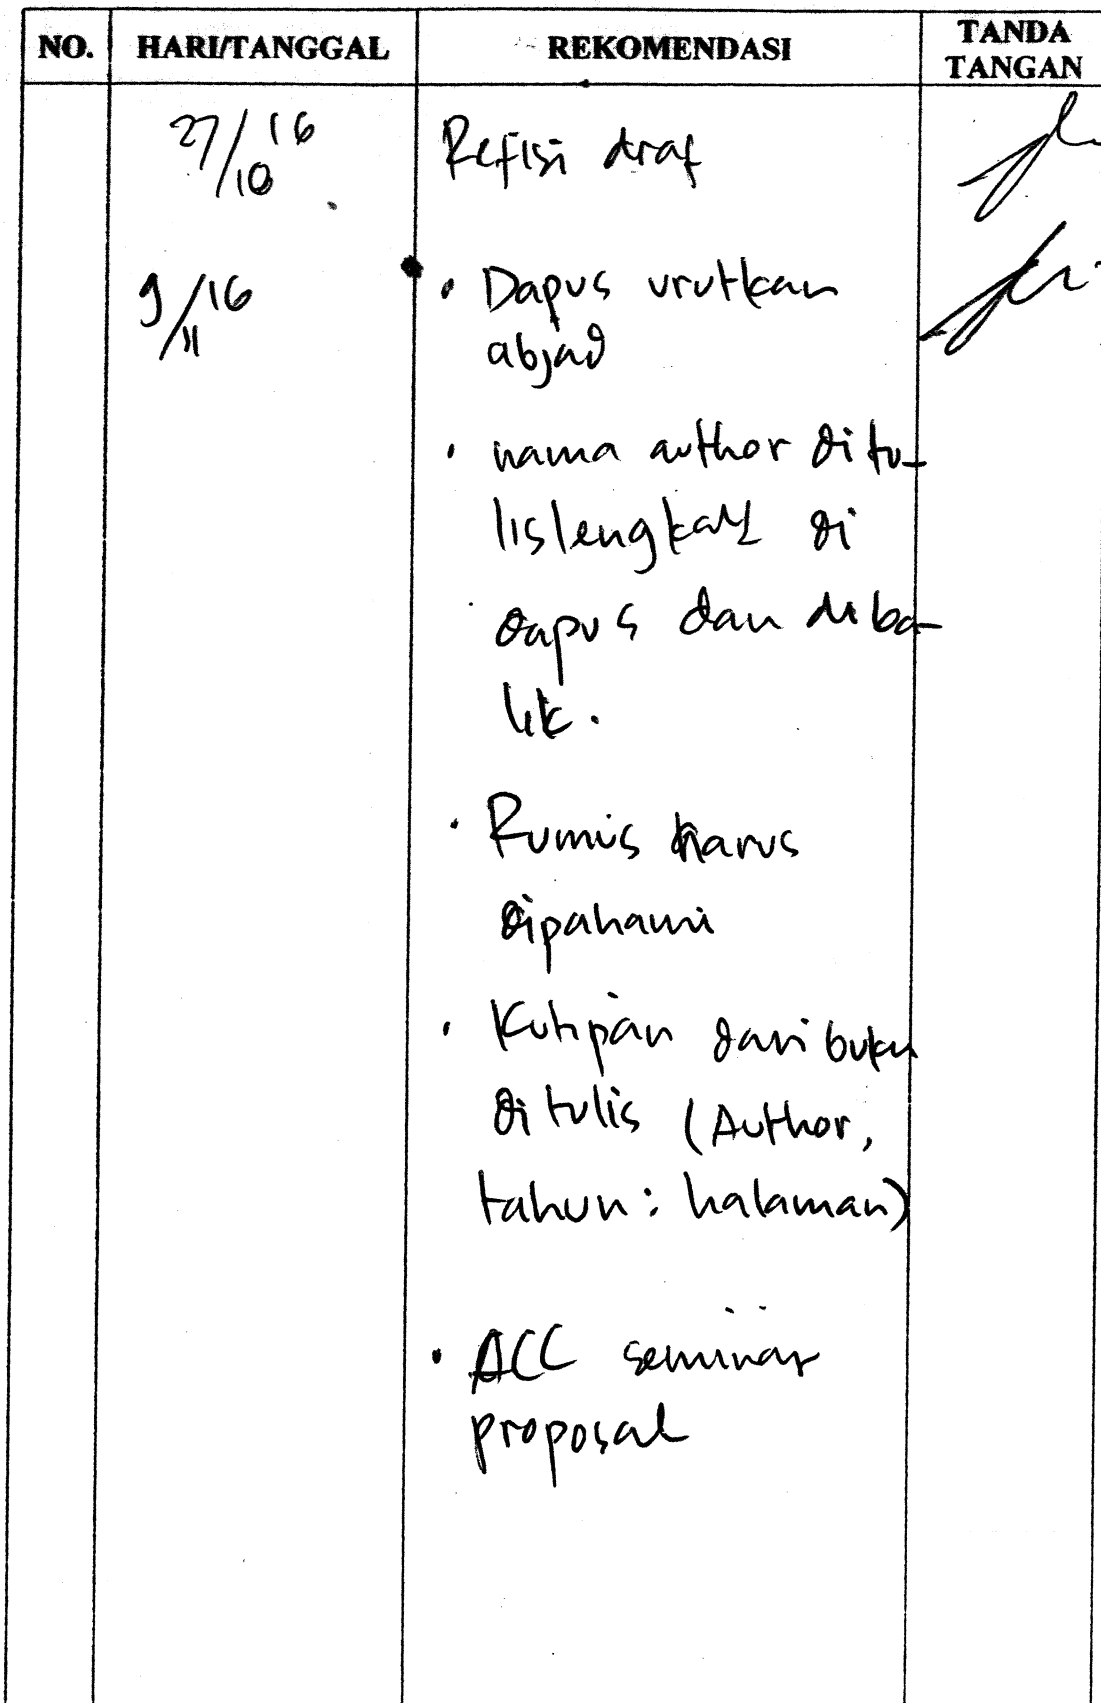 NO. HARI/TANGGAL REKOMENDASI TANDA TANGAN
27/10 16 Refisi draf
9/11 16 • Dapus urutkan
abjad
• nama author ditu-
lis lengkap di
dapus dan diba-
lik.
• Rumus harus
dipahami
• Kutipan dari buku
ditulis (Author,
tahun: halaman)
• ACC seminar
proposal